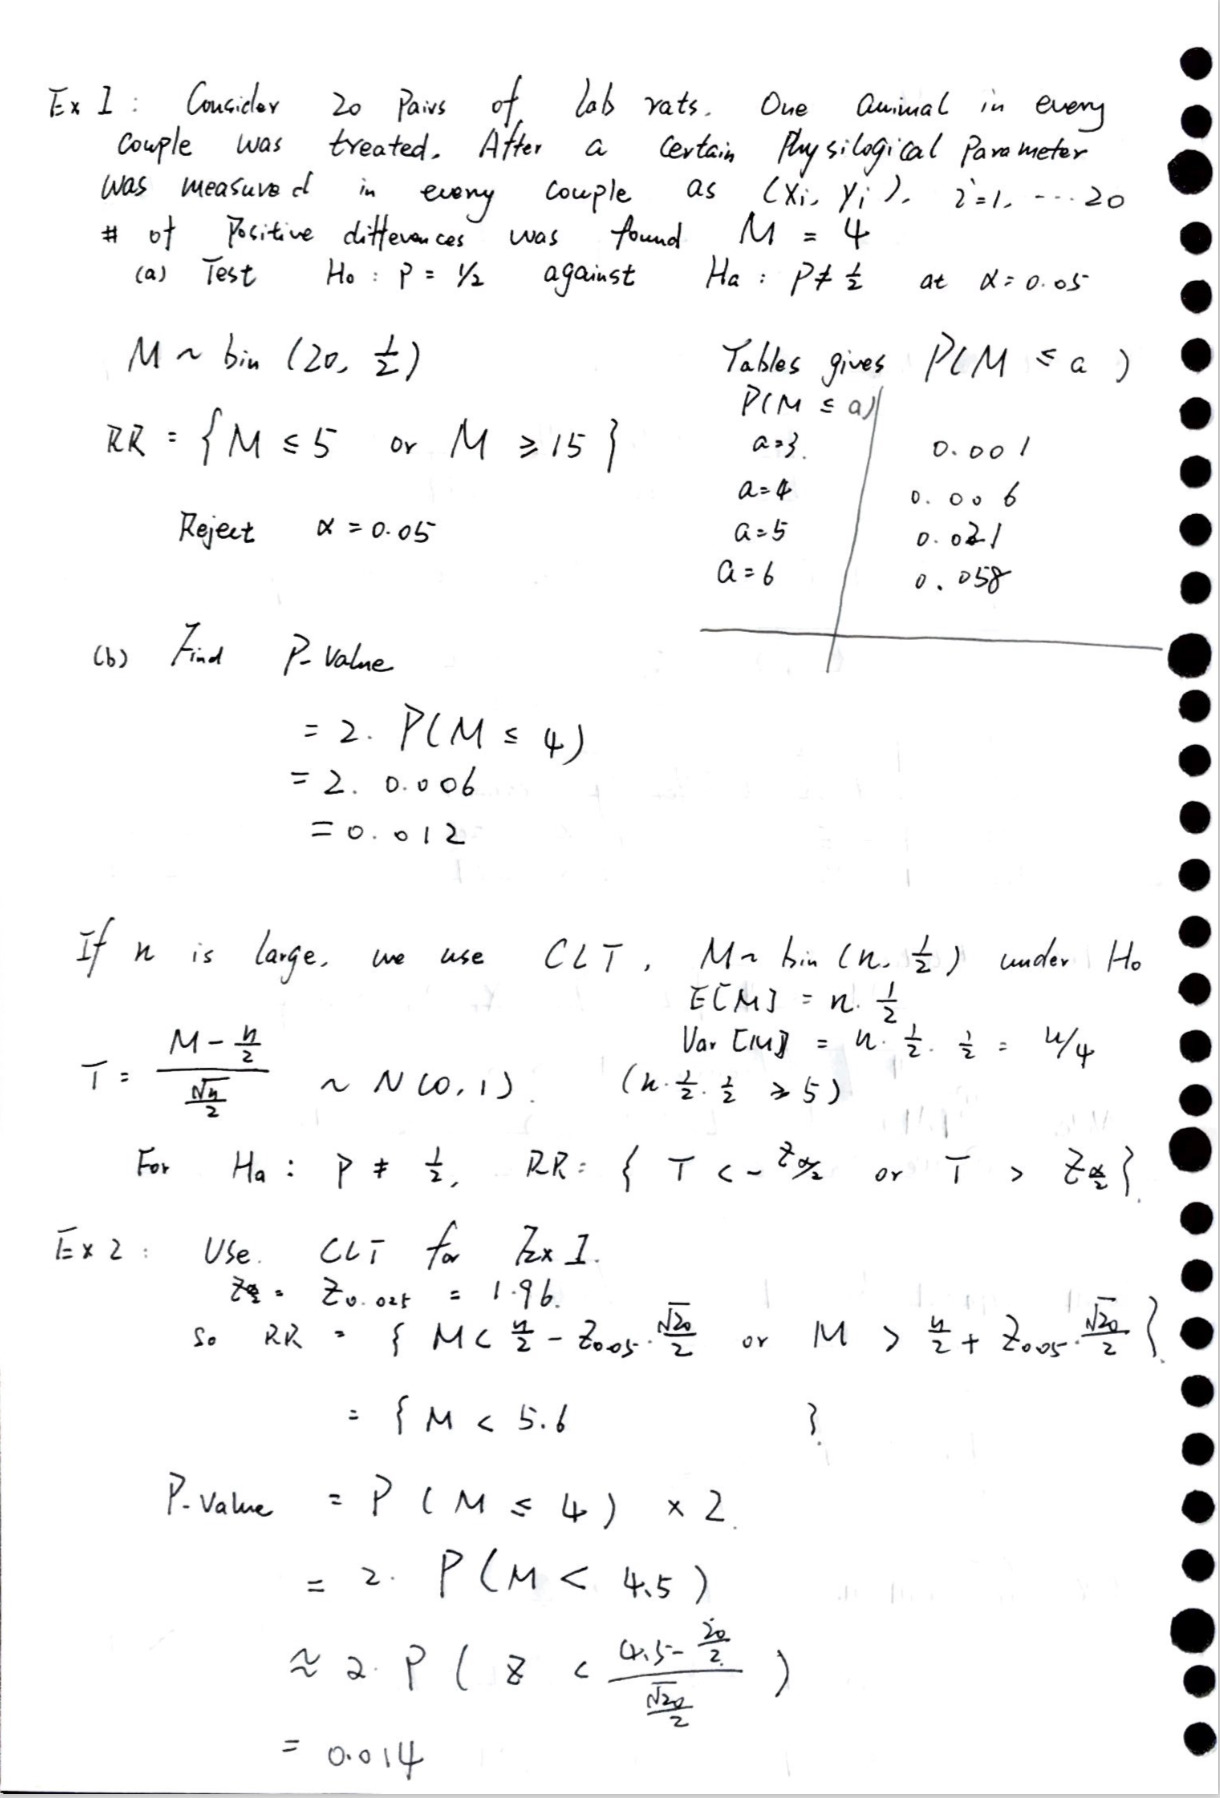 Ex 1 : Consider 20 Pairs of lab rats. One animal in every
couple was treated. After a certain Physilogical Parameter
was measured in every couple as (Xi, Yi), i=1, ... 20
# of Positive differences was found M = 4
(a) Test Ho : P = 1/2 against Ha : P ≠ 1/2 at α = 0.05
M ~ bin (20, 1/2)
RR = { M ≤ 5 or M ≥ 15 }
Reject α = 0.05
Tables gives P(M ≤ a)
P(M ≤ a)
a=3. 0.001
a=4 0.006
a=5 0.021
a=6 0.058
(b) Find P-Value
= 2. P(M ≤ 4)
= 2. 0.006
= 0.012
If n is large, we use CLT, M ~ bin (n, 1/2) under Ho
E[M] = n. 1/2
Var [M] = n. 1/2. 1/2 = n/4
T = (M - n/2) / (√n/2) ~ N(0,1). (n. 1/2. 1/2 ≥ 5)
For Ha : P ≠ 1/2, RR = { T < -Zα/2 or T > Zα/2 }
Ex 2 : Use CLT for Ex 1.
Zα/2 = Z0.025 = 1.96.
So RR = { M < n/2 - Z0.05 · √20/2 or M > n/2 + Z0.05 · √20/2 }
= { M < 5.6 }
P-Value = P (M ≤ 4) × 2.
= 2. P(M < 4.5)
≈ 2. P ( Z < (4.5 - 20/2) / (√20/2) )
= 0.014